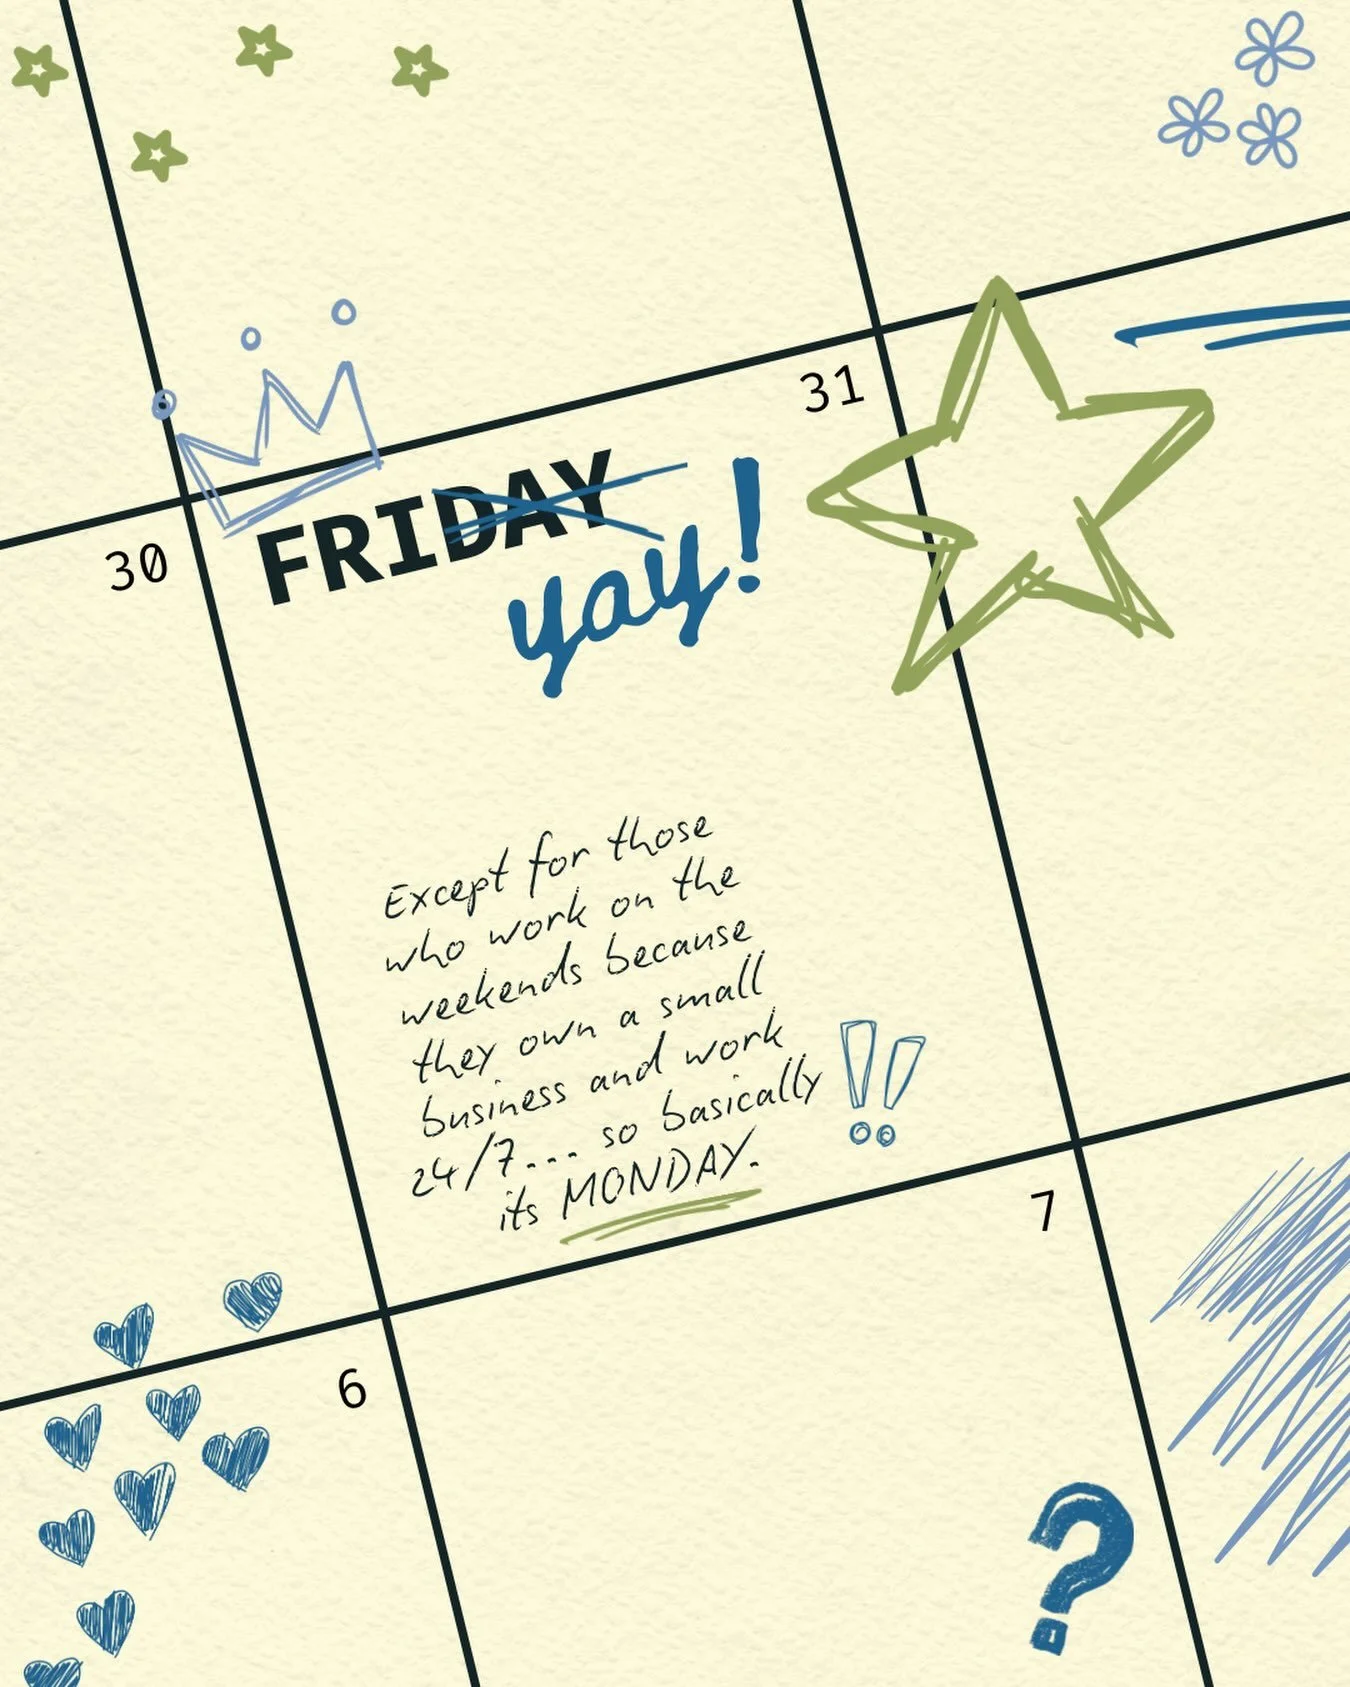 31
30
FRIDAY
yay!
Except for those
who work on the
weekends because
they own a small
business and work
24/7... so basically
its MONDAY.
!!
7
6
?